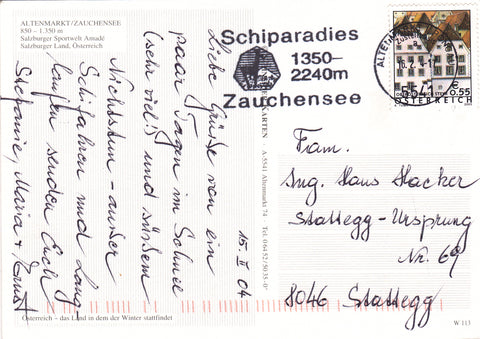 ALTENMARKT/ZAUCHENSEE
850 – 1.350 m
Salzburger Sportwelt Amadé
Salzburger Land, Österreich
15. II 04
Liebe Grüße von ein
paar Tagen im Schnee
(sehr viel!) und süßem
Nichtstun – außer
Schifahren und Lang-
laufen senden Euch
Stefanie, Maria + Ernst
Österreich – das Land in dem der Winter stattfindet
KARTEN A 5541 Altenmarkt 74 Tel 0 64 52/50 35-0
Schiparadies
1350–
2240m
Zauchensee
ALTENMA
5541
€ 0.55
ÖSTERREICH
Fam.
Ing. Hans Hacker
Stattegg-Ursprung
Nr. 69
8046 Stattegg
W 113